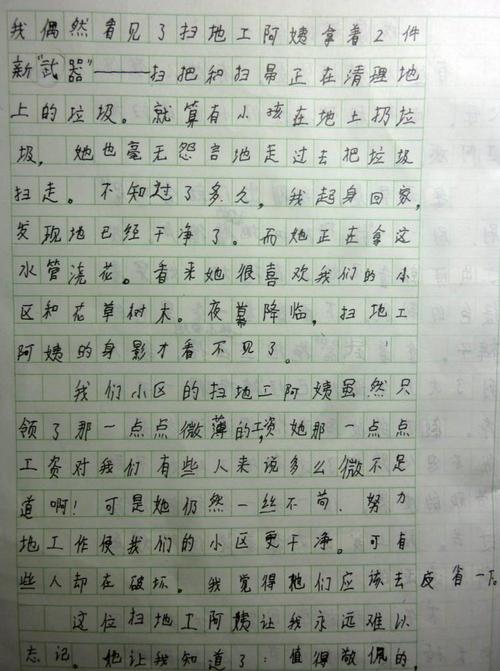 我偶然看见了扫地工阿姨拿着2件
新"武器"——扫把和扫帚正在清理地
上的垃圾。就算有小孩在地上扔垃
圾，她也毫无怨言地走过去把垃圾
扫走。不知过了多久，我起身回家，
发现地已经干净了。而她正在拿这
水管浇花。看来她很喜欢我们的小
区和花草树木。夜幕降临，扫地工
阿姨的身影才看不见了。
我们小区的扫地工阿姨虽然只
领了那一点点微薄的工资，她那一点点
工资对我们有些人来说多么微不足
道啊！可是她仍然一丝不苟，努力
地工作使我们的小区更干净。可有
些人却在破坏。我觉得他们应该去反省一下。
这位扫地工阿姨让我永远难以
忘记。她让我知道了：值得敬佩的，